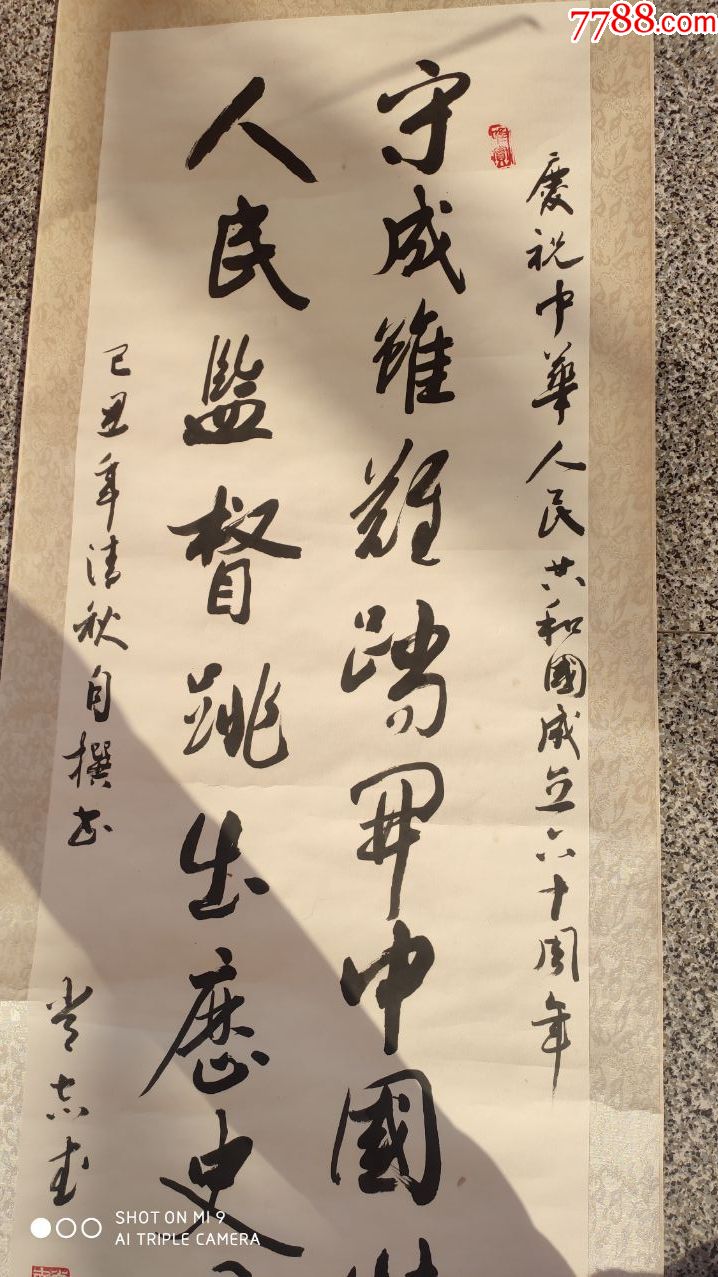 7788.com
慶祝中華人民共和國成立六十周年
守成雖難踏開中國特
人民監督跳出歷史
己丑年清秋自撰書
SHOT ON MI 9
AI TRIPLE CAMERA